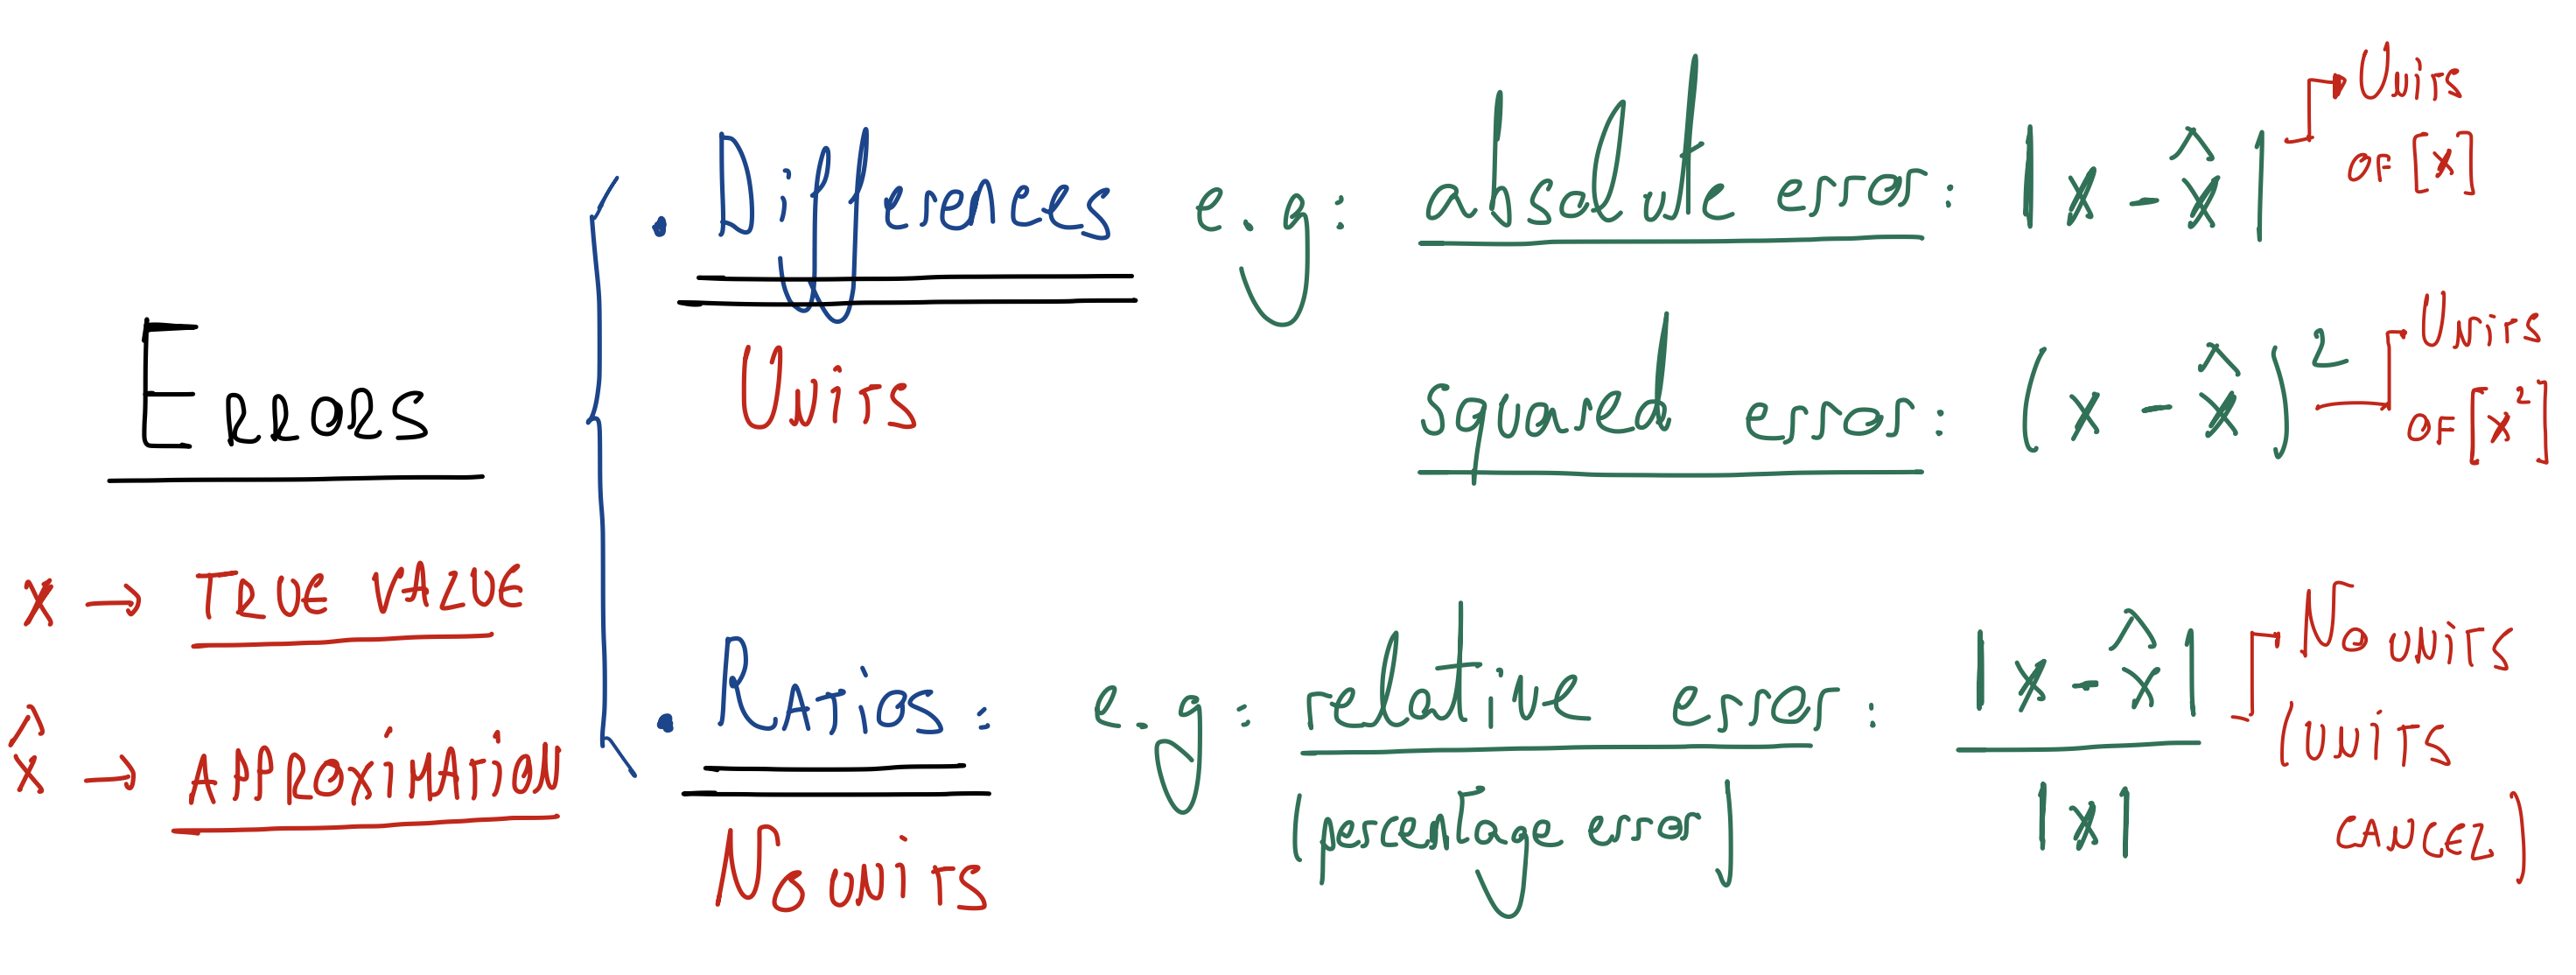 ERRORS
x → TRUE VALUE
x̂ → APPROXIMATION
• Differences
UNITS
e.g: absolute error: |x - x̂|
UNITS
OF [x]
squared error: (x - x̂)²
UNITS
OF [x²]
• RATIOS:
NO UNITS
e.g: relative error: |x - x̂|
|x|
(percentage error)
NO UNITS
(UNITS
CANCEL)